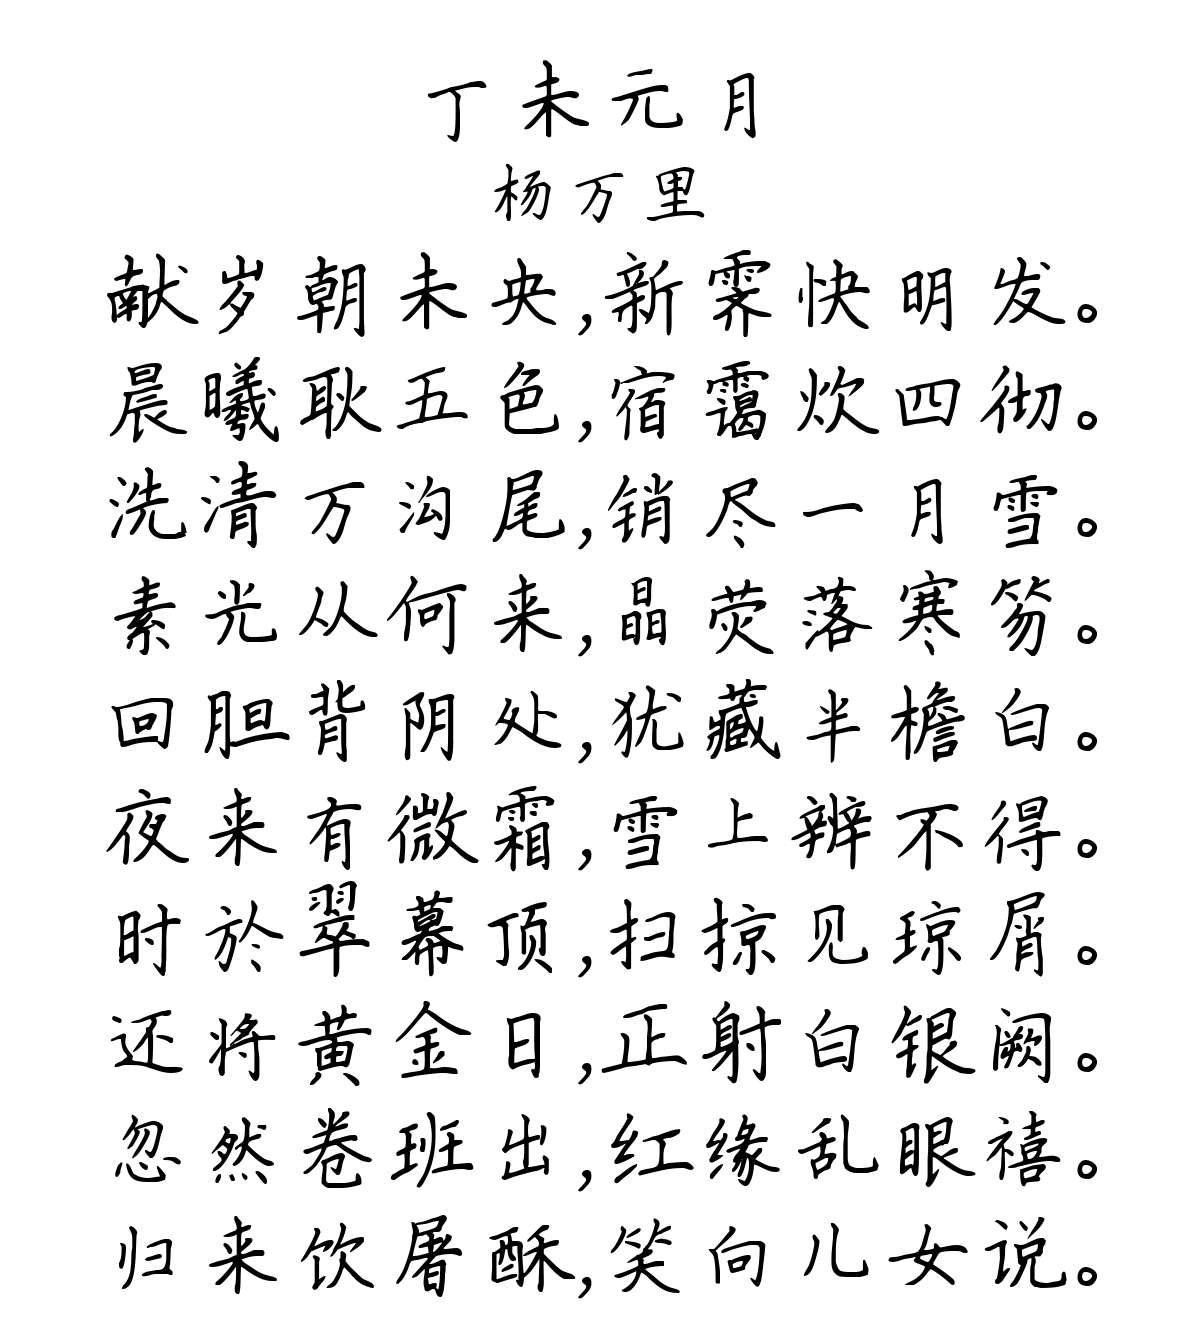 丁未元月
杨万里
献岁朝未央,新霁快明发。
晨曦耿五色,宿霭炊四彻。
洗清万沟尾,销尽一月雪。
素光从何来,晶荧落寒笏。
回胆背阴处,犹藏半檐白。
夜来有微霜,雪上辨不得。
时於翠幕顶,扫掠见琼屑。
还将黄金日,正射白银阙。
忽然卷班出,红缘乱眼禧。
归来饮屠酥,笑向儿女说。